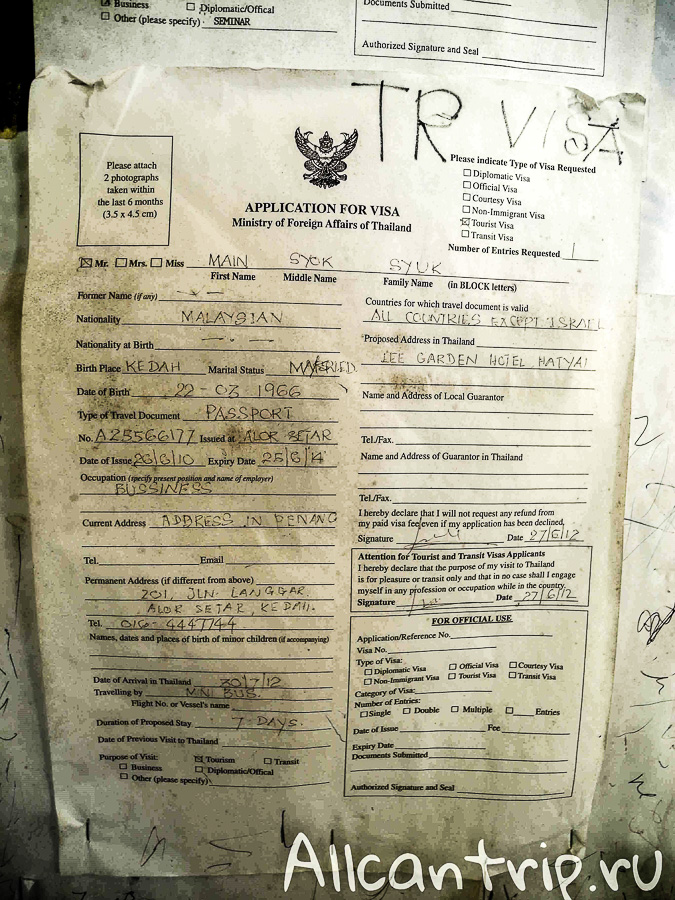 ☒ Business ☐ Diplomatic/Offical
☐ Other (please specify) SEMINAR
Documents Submitted
Authorized Signature and Seal
TR VISA
Please attach
2 photographs
taken within
the last 6 months
(3.5 x 4.5 cm)
APPLICATION FOR VISA
Ministry of Foreign Affairs of Thailand
Please indicate Type of Visa Requested
☐ Diplomatic Visa
☐ Official Visa
☐ Courtesy Visa
☐ Non-Immigrant Visa
☒ Tourist Visa
☐ Transit Visa
Number of Entries Requested 1
☒ Mr. ☐ Mrs. ☐ Miss MAIN SYOK SYUK
First Name Middle Name Family Name (in BLOCK letters)
Former Name (if any)
Nationality MALAYSIAN
Nationality at Birth
Birth Place KEDAH Marital Status MARRIED
Date of Birth 22-03-1966
Type of Travel Document PASSPORT
No. A25566177 Issued at ALOR SETAR
Date of Issue 26/6/10 Expiry Date 25/6/14
Occupation (specify present position and name of employer)
BUSSINESS
Current Address ADDRESS IN PENANG
Tel. Email
Permanent Address (if different from above)
201, JLN. LANGGAR,
ALOR SETAR, KEDAH.
Tel. 016-4447744
Names, dates and places of birth of minor children (if accompanying)
Date of Arrival in Thailand 30/7/12
Travelling by MINI BUS.
Flight No. or Vessel's name
Duration of Proposed Stay 7 DAYS.
Date of Previous Visit to Thailand
Purpose of Visit: ☒ Tourism ☐ Transit
☐ Business ☐ Diplomatic/Offical
☐ Other (please specify)
Countries for which travel document is valid
ALL COUNTRIES EXCEPT ISRAEL
Proposed Address in Thailand
LEE GARDEN HOTEL, HATYAI
Name and Address of Local Guarantor
Tel./Fax.
Name and Address of Guarantor in Thailand
Tel./Fax.
I hereby declare that I will not request any refund from
my paid visa fee even if my application has been declined.
Signature Date 27/6/12
Attention for Tourist and Transit Visas Applicants
I hereby declare that the purpose of my visit to Thailand
is for pleasure or transit only and that in no case shall I engage
myself in any profession or occupation while in the country.
Signature Date 27/6/12
FOR OFFICIAL USE
Application/Reference No.
Visa No.
Type of Visa:
☐ Diplomatic Visa ☐ Official Visa ☐ Courtesy Visa
☐ Non-Immigrant Visa ☐ Tourist Visa ☐ Transit Visa
Category of Visa:
Number of Entries:
☐ Single ☐ Double ☐ Multiple ☐ Entries
Date of Issue Fee
Expiry Date
Documents Submitted
Authorized Signature and Seal
Allcantrip.ru